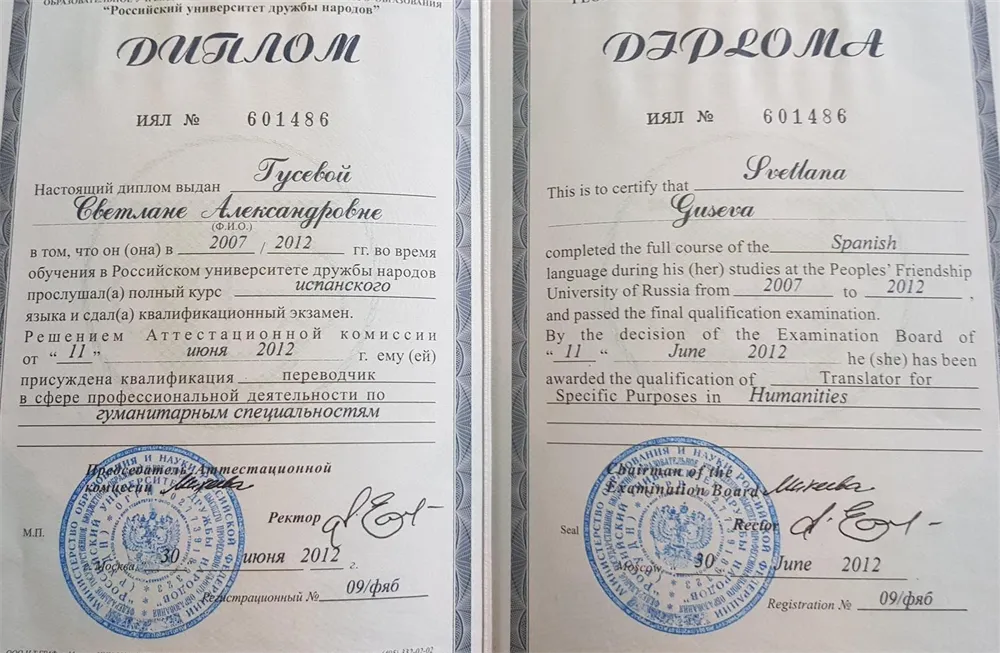 "Российский университет дружбы народов"
ДИПЛОМ
ИЯЛ № 601486
Настоящий диплом выдан Гусевой
Светлане Александровне
(Ф.И.О.)
в том, что он (она) в 2007 / 2012 гг. во время
обучения в Российском университете дружбы народов
прослушал(а) полный курс испанского
языка и сдал(а) квалификационный экзамен.
Решением Аттестационной комиссии
от “ 11 ” июня 2012 г. ему (ей)
присуждена квалификация переводчик
в сфере профессиональной деятельности по
гуманитарным специальностям
Председатель Аттестационной
комиссии
Ректор
М.П.
г. Москва 30 июня 2012 г.
Регистрационный № 09/фяб
DIPLOMA
ИЯЛ № 601486
This is to certify that Svetlana
Guseva
completed the full course of the Spanish
language during his (her) studies at the Peoples' Friendship
University of Russia from 2007 to 2012 ,
and passed the final qualification examination.
By the decision of the Examination Board of
“ 11 “ June 2012 he (she) has been
awarded the qualification of Translator for
Specific Purposes in Humanities
Chairman of the
Examination Board
Rector
Seal
Moscow 30 June 2012
Registration № 09/фяб